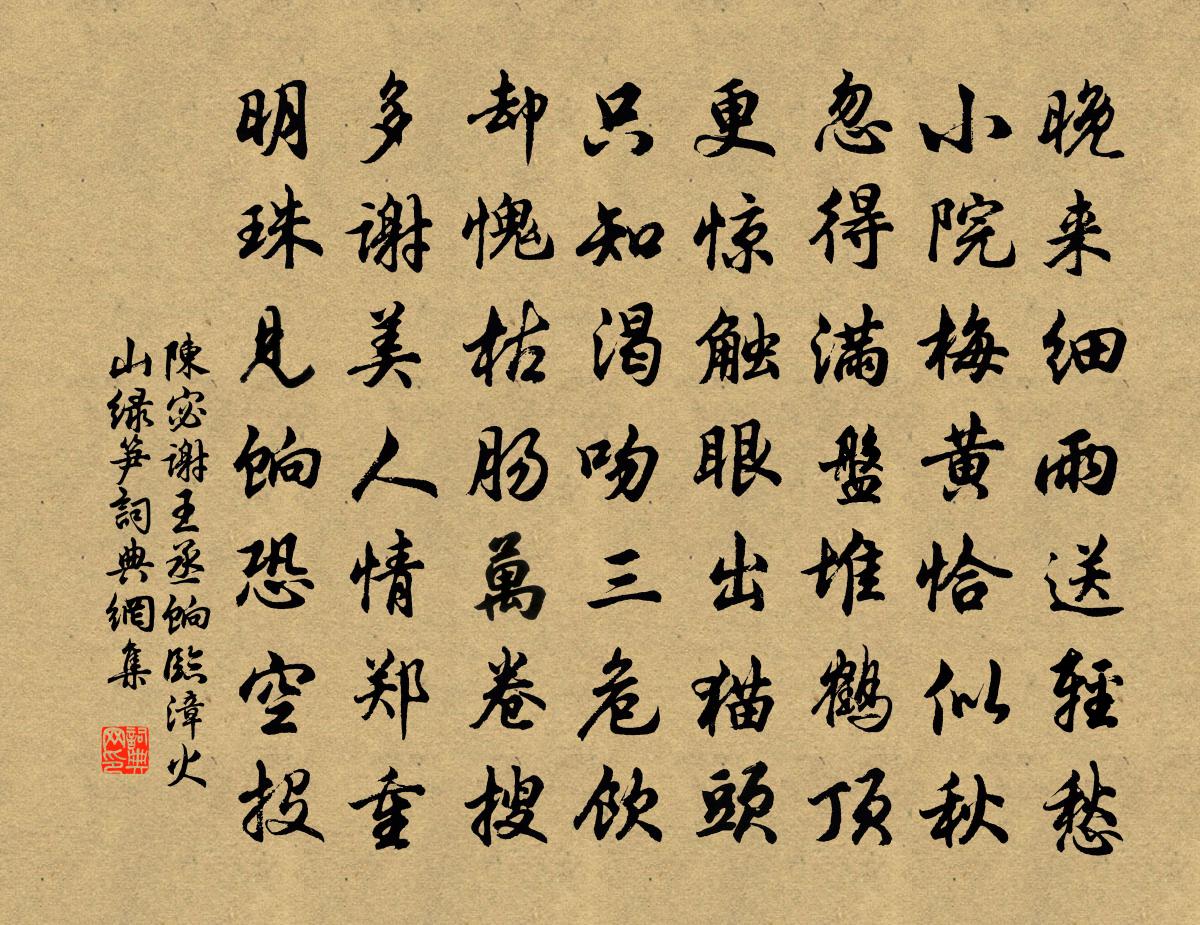 晚来细雨送轻愁
小院梅黄恰似秋
忽得满盤堆鹤顶
更惊触眼出猫頭
只知渴吻三危飲
却愧枯肠萬卷搜
多谢美人情郑重
明珠見餉恐空投
陳宓谢王丞餉臨漳火
山绿笋詞典網集
詞典网印